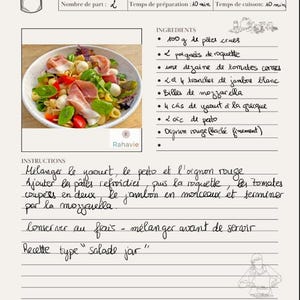 Nombre de part : 2
Temps de préparation : 10 min
Temps de cuisson: 10 min
INGREDIENTS
100 g de pâtes crues
2 poignées de roquette
une dizaine de tomates cerises
2 à 4 tranches de jambon blanc
Billes de mozzarella
4 càs de yaourt à la grecque
2 càc de pesto
Oignon rouge (haché finement)
Rahavie
INSTRUCTIONS
Mélanger le yaourt, le pesto et l'oignon rouge
Ajouter les pâtes refroidies puis la roquette, les tomates
coupées en deux, le jambon en morceaux et terminer
par la mozzarella.
Conserver au frais - mélanger avant de servir
Recette type "salade jar"